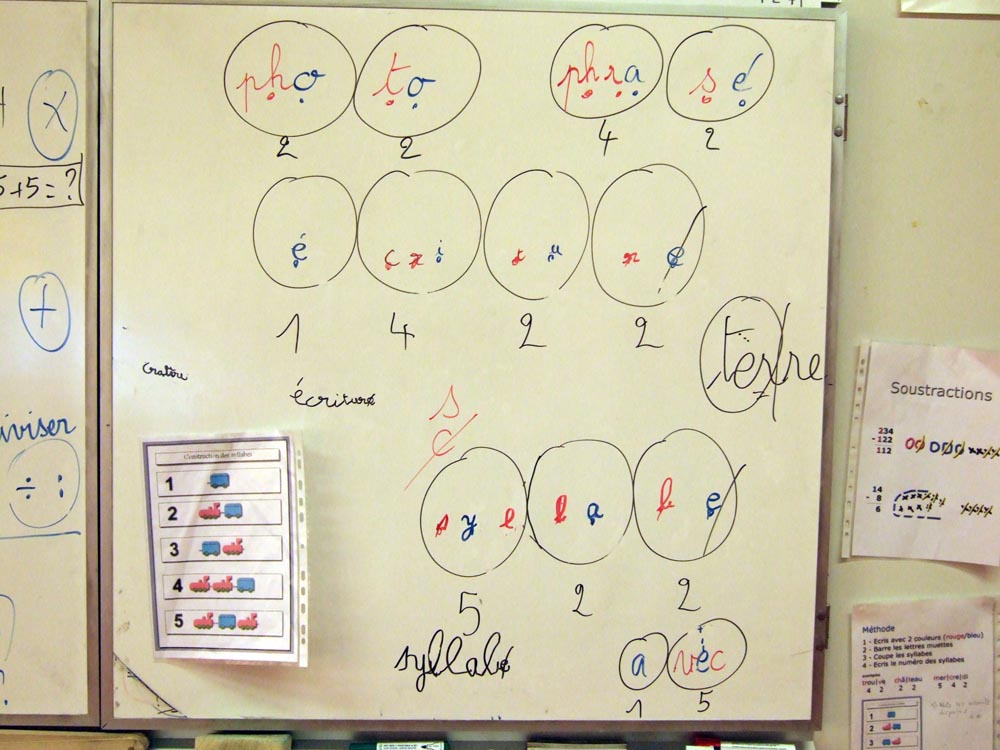 x
5+5=?
+
iviser
÷ :
pho to phra sé
2 2 4 2
é cri tu re
1 4 2 2
tex/re
cratère
écriture
s
c
syl la be
5 2 2
syllabe
a vec
1 5
Construction des syllabes
1
2
3
4
5
Soustractions
234
- 122
112
14
- 8
6
Méthode
1 - Ecris avec 2 couleurs (rouge/bleu)
2 - Barre les lettres muettes
3 - Coupe les syllabes
4 - Ecris le numéro des syllabes
exemples
trou|ve châ|teau mer|cre|di
4 2 2 2 5 4 2
1
2
3